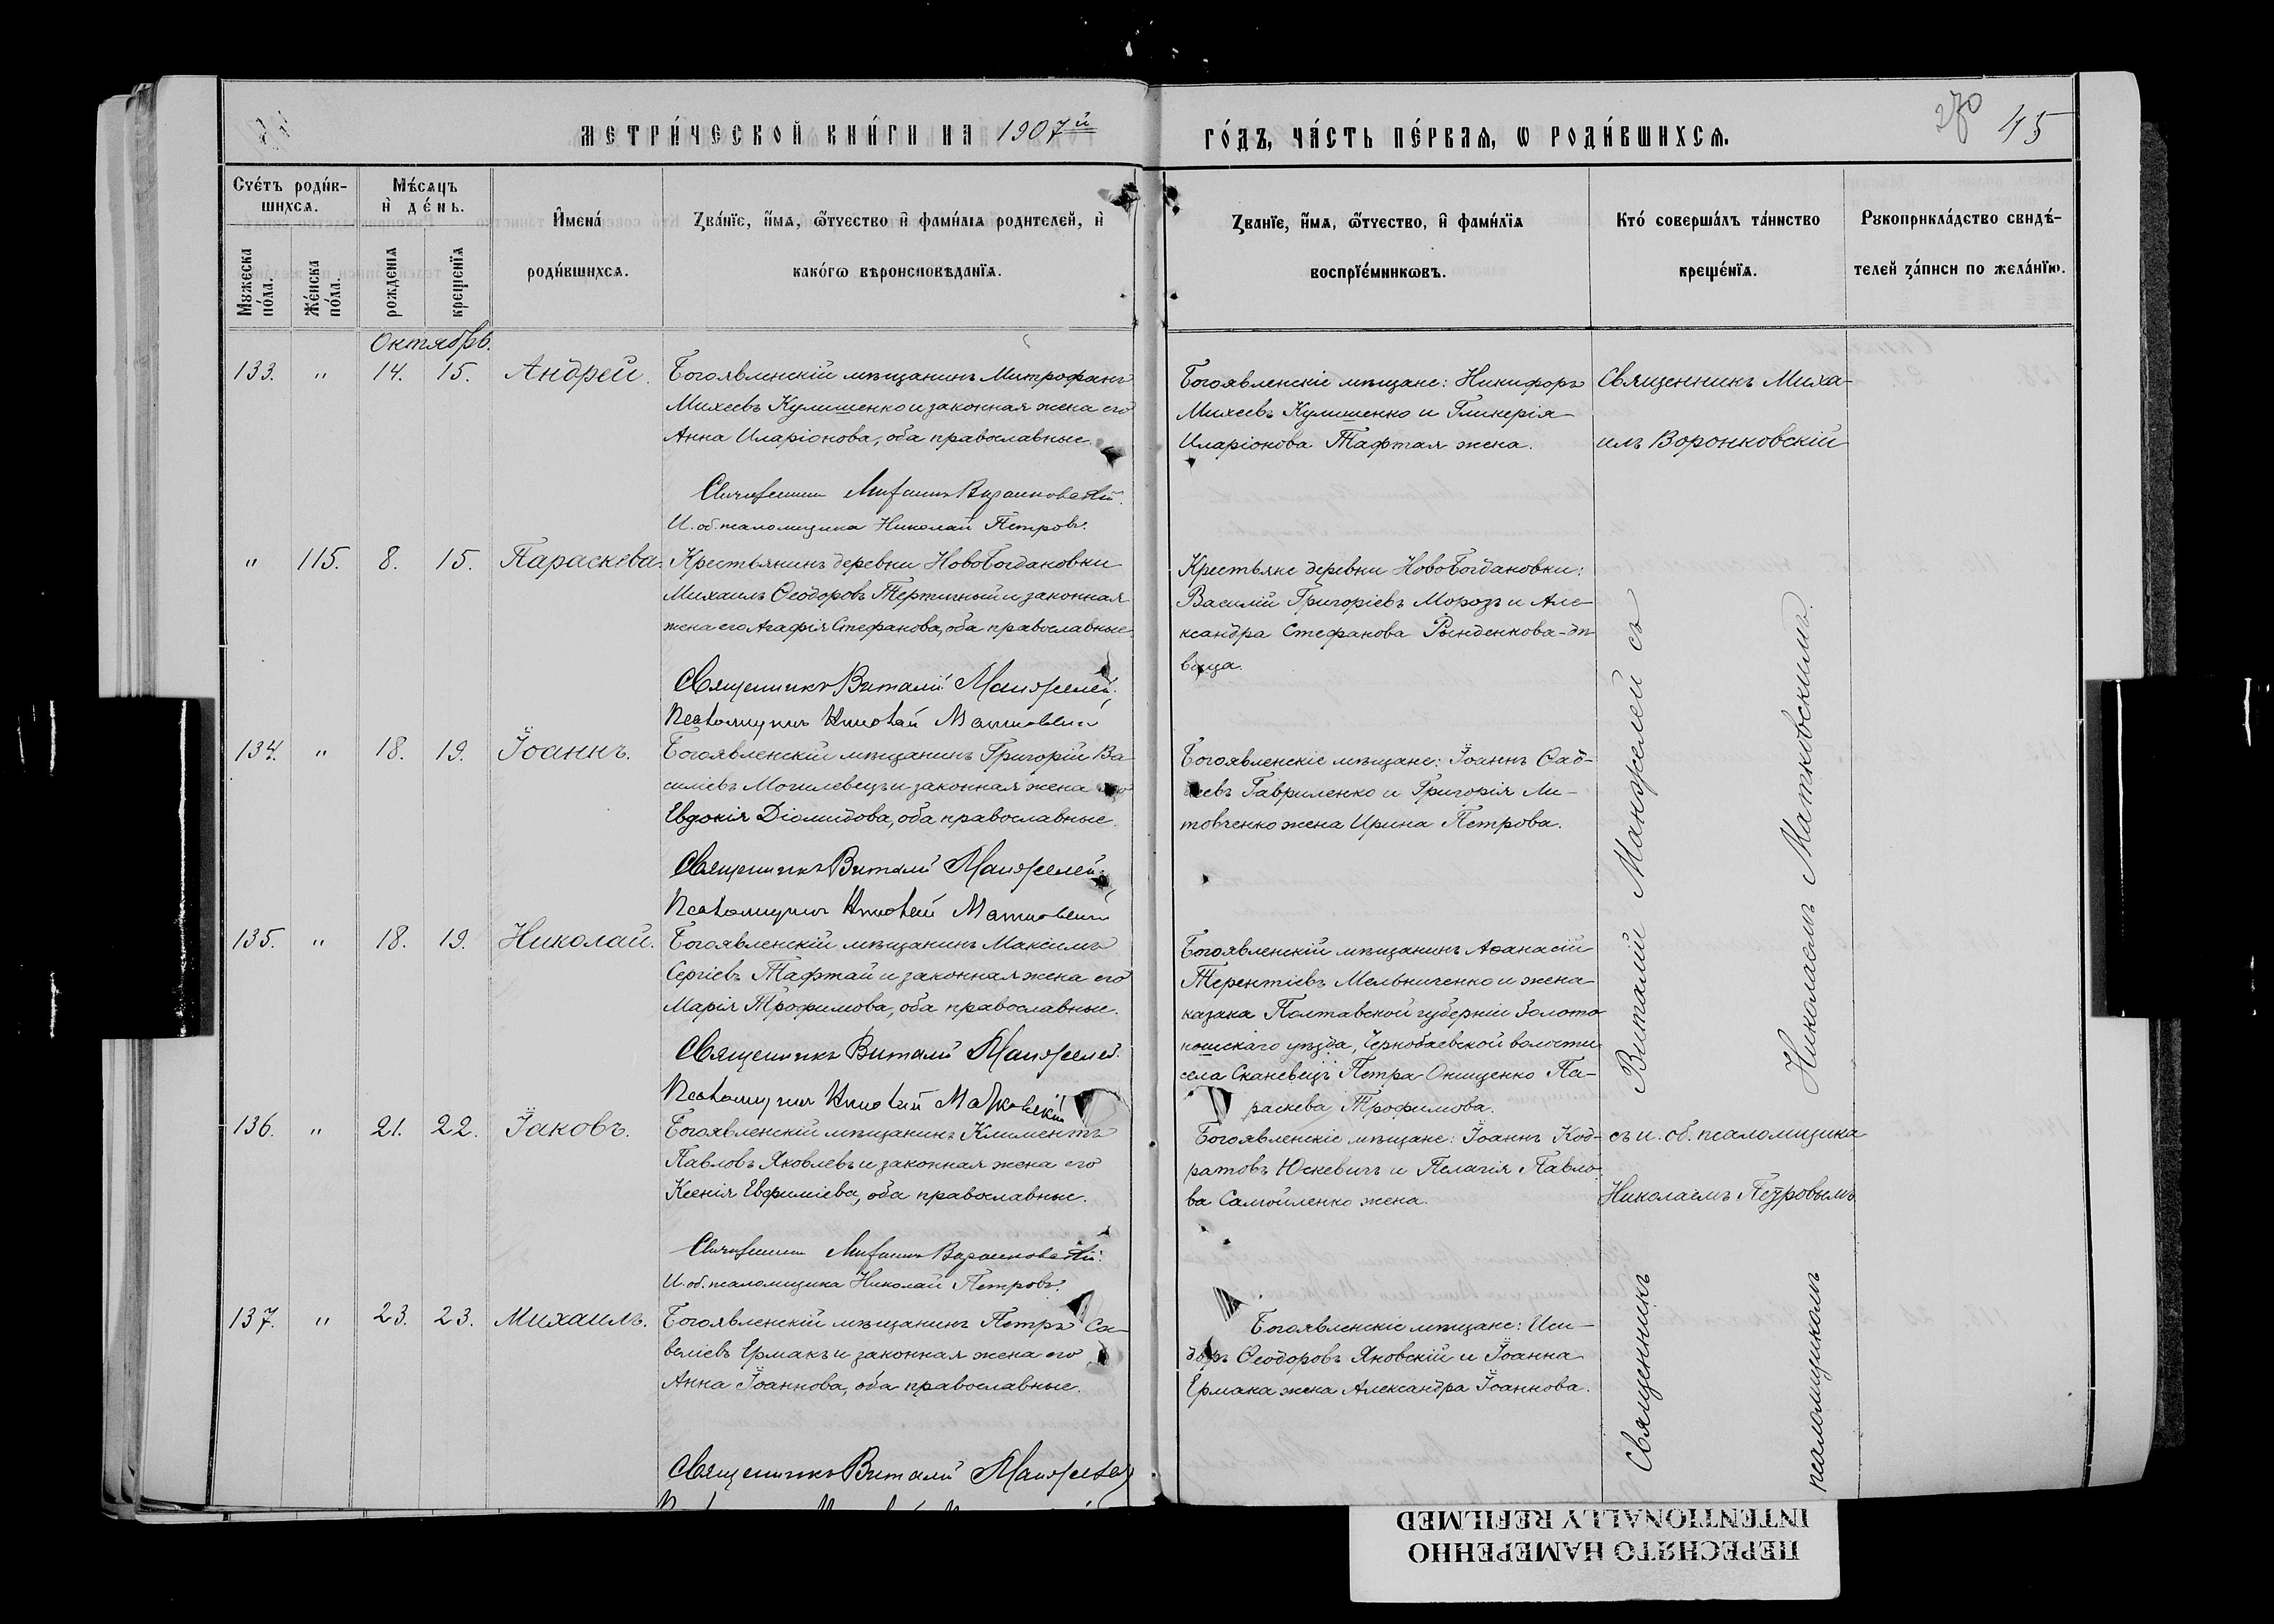 МЕТРИ́ЧЕСКОЙ КНИ́ГИ НА 1907й ГО́ДЪ, ЧА́СТЬ ПЕ́РВАѦ, Ѡ РОДИ́ВШИХСѦ.
270 45
Счетъ роди́в-
шихсѧ.
Мужеска по́ла.
Же́нска по́ла.
Мѣ́сѧцъ
и҆ де́нь.
рожденїѧ
крещенїѧ
И҆мена́
роди́вшихсѧ.
Ꙁва́нїе, и҆́мѧ, ѻ҆́тчество и҆ фами́лїѧ родителей, и҆
како́гѡ вѣроисповѣданїѧ.
Ꙁванїе, и҆́мѧ, ѻ҆́тчество, и҆ фами́лїѧ
воспрїе́мниковъ.
Кто́ соверша́лъ та́инство
креще́нїѧ.
Рꙋкоприкла́дство свидѣ́-
телей ꙁа́писи по жела́нїю.
Октябрь.
133. " 14. 15. Андрей.
Богоявленскій мѣщанинъ Митрофанъ
Михеевъ Кулишенко и законная жена его
Анна Иларіонова, оба православные.
И. об. псаломщика Николай Петровъ.
Богоявленскіе мѣщане: Никифоръ
Михеевъ Кулишенко и Гликерія
Иларіонова Тафтая жена.
Священникъ Миха-
илъ Воронковскій
" 115. 8. 15. Параскева.
Крестьянинъ деревни НовоБогдановки
Михаилъ Ѳеодоровъ Тертичный и законная
жена его Агафія Стефанова, оба православные.
Священникъ Виталій Манжелей.
Псаломщикъ Николай Матковскій
Крестьяне деревни НовоБогдановки:
Василій Григоріевъ Морозъ и Але-
ксандра Стефанова Рынденкова-дѣ-
вица.
134. " 18. 19. Іоаннъ.
Богоявленскій мѣщанинъ Григорій Ва-
силіевъ Могилевецъ и законная жена его
Евдокія Діомидова, оба православные.
Священникъ Виталій Манжелей.
Псаломщикъ Николай Матковскій
Богоявленскіе мѣщане: Іоаннъ Ѳад-
деевъ Гавриленко и Григорія Ли-
товченко жена Ирина Петрова.
135. " 18. 19. Николай.
Богоявленскій мѣщанинъ Максимъ
Сергіевъ Тафтай и законная жена его
Марія Трофимова, оба православные.
Священникъ Виталій Манжелей.
Псаломщикъ Николай Матковскій
Богоявленскій мѣщанинъ Аѳанасій
Терентіевъ Мельниченко и жена
казака Полтавской губерніи Золото
ношскаго уѣзда, Чернобаевской волости
села Сканевецъ Петра Онищенко Па-
раскева Трофимова.
136. " 21. 22. Іаковъ.
Богоявленскій мѣщанинъ Климентъ
Павловъ Яковлевъ и законная жена его
Ксенія Евфиміева, оба православные.
И. об. псаломщика Николай Петровъ.
Богоявленскіе мѣщане: Іоаннъ Код-
ратовъ Юскевичъ и Пелагія Павло-
ва Самойленко жена.
съ и. об. псаломщика
Николаемъ Петровымъ.
137. " 23. 23. Михаилъ.
Богоявленскій мѣщанинъ Петръ Са-
веліевъ Ермакъ и законная жена его
Анна Іоаннова, оба православные.
Священникъ Виталій Манжелей
Богоявленскіе мѣщане: Иси-
доръ Ѳеодоровъ Яновскій и Іоанна
Ермака жена Александра Іоаннова.
Священникъ Виталій Манжелей съ
псаломщикомъ Николаемъ Матковскимъ.
ПЕРЕСНЯТО НАМЕРЕННО
INTENTIONALLY REFILMED